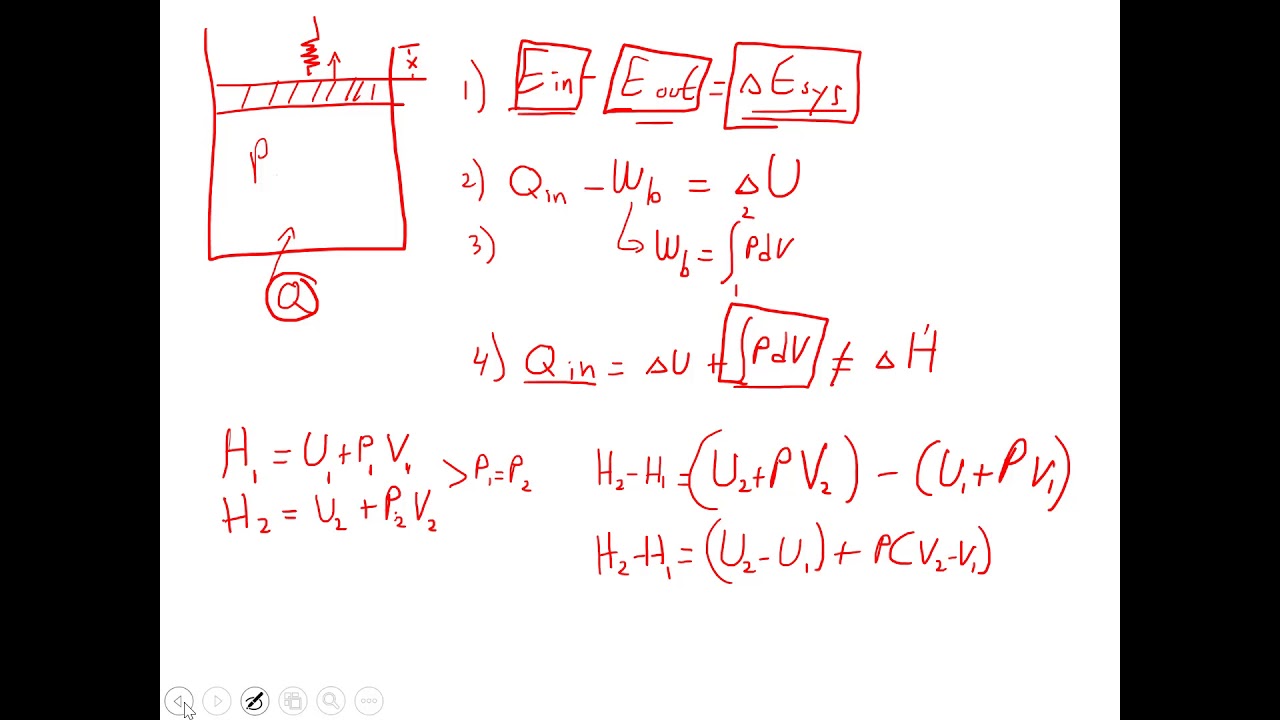 x
P
Q
1) Ein - Eout = ΔEsys
2) Qin - Wb = ΔU
3) Wb = ∫₁² PdV
4) Qin = ΔU + ∫PdV ≠ ΔH
H₁ = U₁ + P₁V₁
H₂ = U₂ + P₂V₂
> P₁ = P₂
H₂-H₁ = (U₂+PV₂) - (U₁+PV₁)
H₂-H₁ = (U₂-U₁) + P(V₂-V₁)